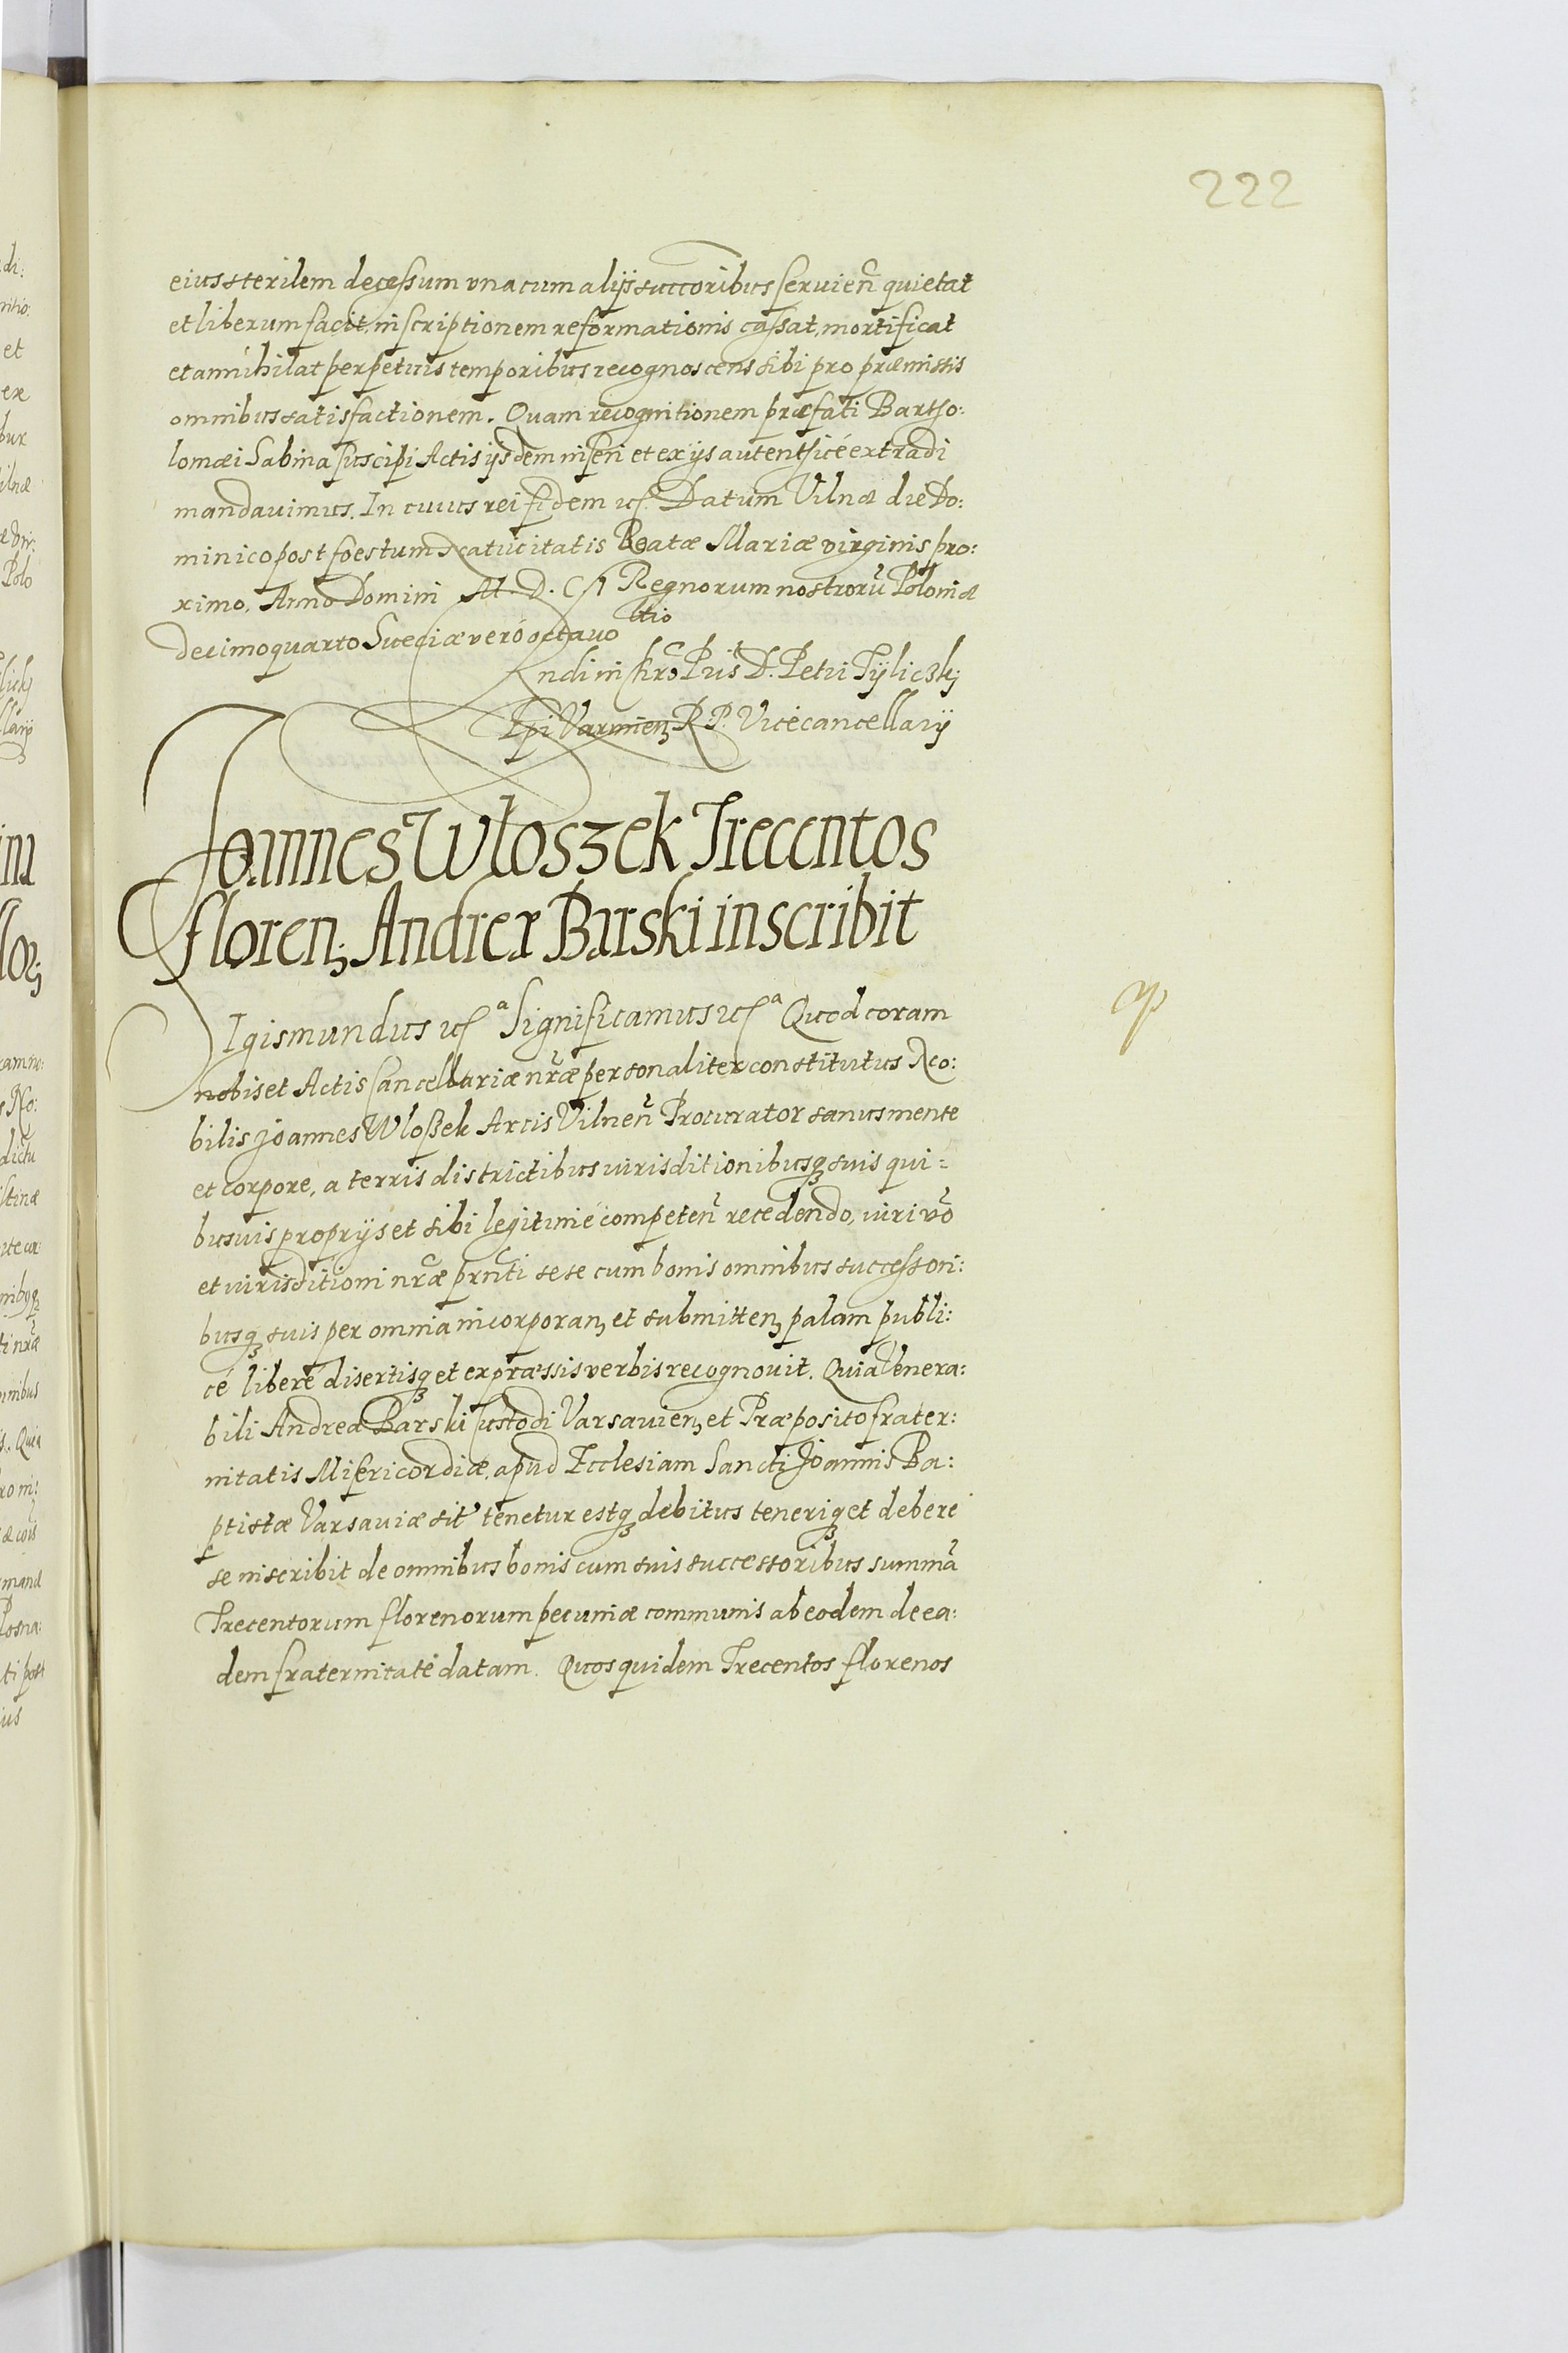 222
eius sterilem decessum vnacum alijs succoribus seruieñ quietat
et liberum facit, inscriptionem reformationis cassat, mortificat
et annihilat perpetuis temporibus recognoscens sibi pro præmissis
omnibus satisfactionem. Quam recognitionem præfati Bartho:
lomæi Sabina suscipi Actis ijsdem inseri et ex ijs autenthicé extradi
mandauimus. In cuius rei fidem etc. Datum Vilnæ die Do:
minico post foestum Natiuitatis Beatæ Mariæ virginis pro:
ximo. Anno Domini M. D. CI Regnorum nostrorũ Poloniæ
decimoquarto Sueciæ veró octauo
D. Petri Tÿliczkj
Epi Varmieñ R. P. Vicécancellarÿ
Joannes Włoszek Trecentos
florenꝫ Andreæ Barski inscribit
Sigismundus etcᵃ Significamus etcᵃ Quod coram
nobis et Actis Cancellariæ nr̃æ personaliter constitutus No:
bilis Joannes Wloßek Arcis Vilneñ Procurator sanus mente
et corpore, a terris districtibus iurisditionibusqꝫ suis qui=
busuis proprijs et sibi legitimé competeñ recedendo, iuri vo᷉
et iurisditioni nr̃æ prñti sese cum bonis omnibus successori:
busqꝫ suis per omnia incorporanꝫ et submittenꝫ palam publi:
cé liberé disertisqꝫ et expræssis verbis recognouit. Quia Venera:
bili Andreæ Barski Custodi Varsauienꝫ et Præposito frater:
nitatis Misericordiæ, apud Ecclesiam Sancti Joannis Ba:
ptistæ Varsauiæ sit̃ tenetur estqꝫ debitus teneriqꝫ et deberé
se inscribit de omnibus bonis cum suis successoribus summã
Trecentorum florenorum pecuniæ communis ab eodem de ea:
dem fraternitaté datam. Quos quidem Trecentos florenos